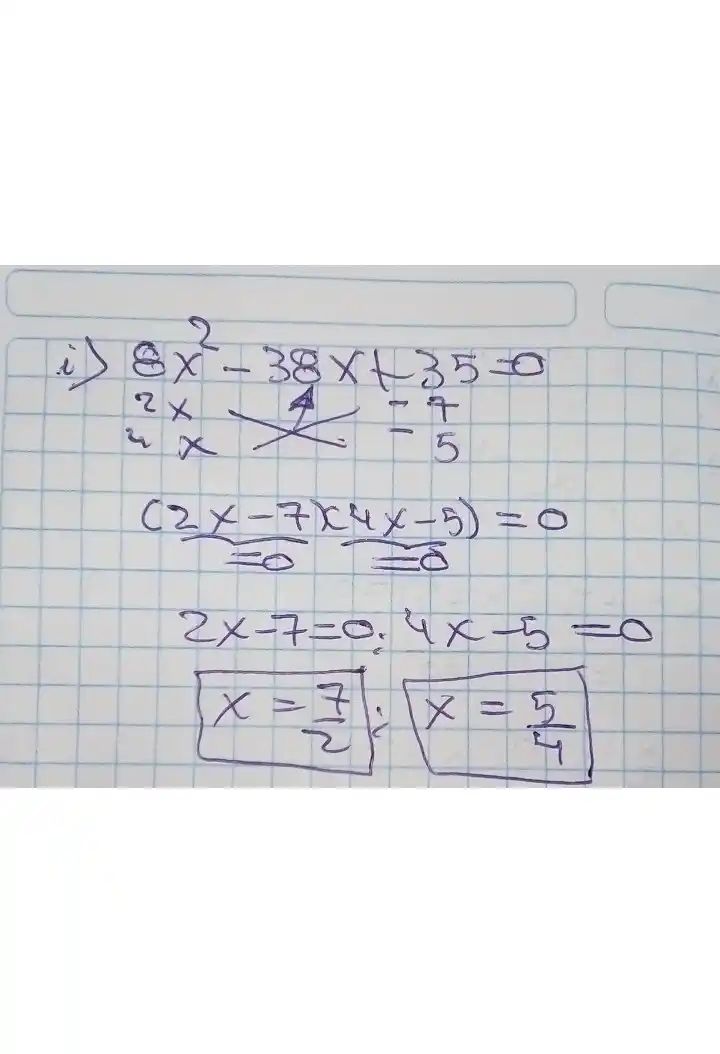 i) 8x² - 38x + 35 = 0
2x - 7
4x - 5
(2x - 7)(4x - 5) = 0
=0 =0
2x - 7 = 0; 4x - 5 = 0
x = 7/2; x = 5/4